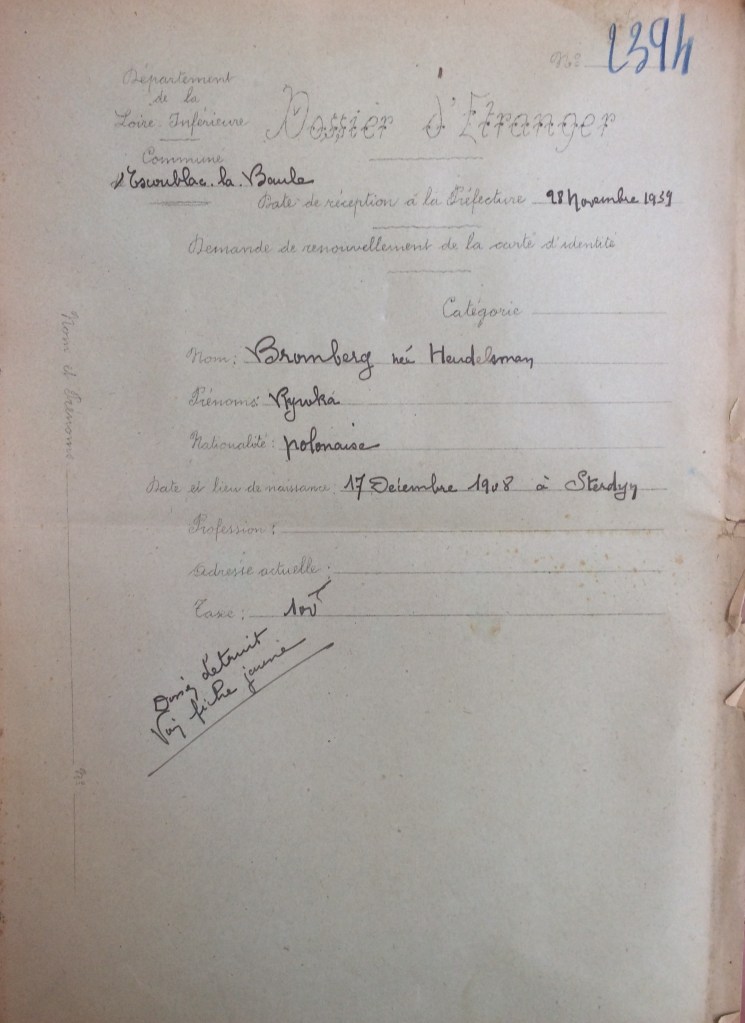 Nº 2394
Département
de la
Loire-Inférieure
Dossier d'Etranger
Commune
d'Escoublac-la-Baule
Date de réception à la Préfecture 28 Novembre 1939
Demande de renouvellement de la carte d'identité
Catégorie
Nom: Bromberg née Hendelsman
Prénoms: Rywka
Nationalité: polonaise
Date et lieu de naissance: 17 Décembre 1908 à Sterdyn
Profession:
Adresse actuelle:
Taxe: 100f
Dossier détruit
Voir fiche jaune
Nom et Prénoms
Nº